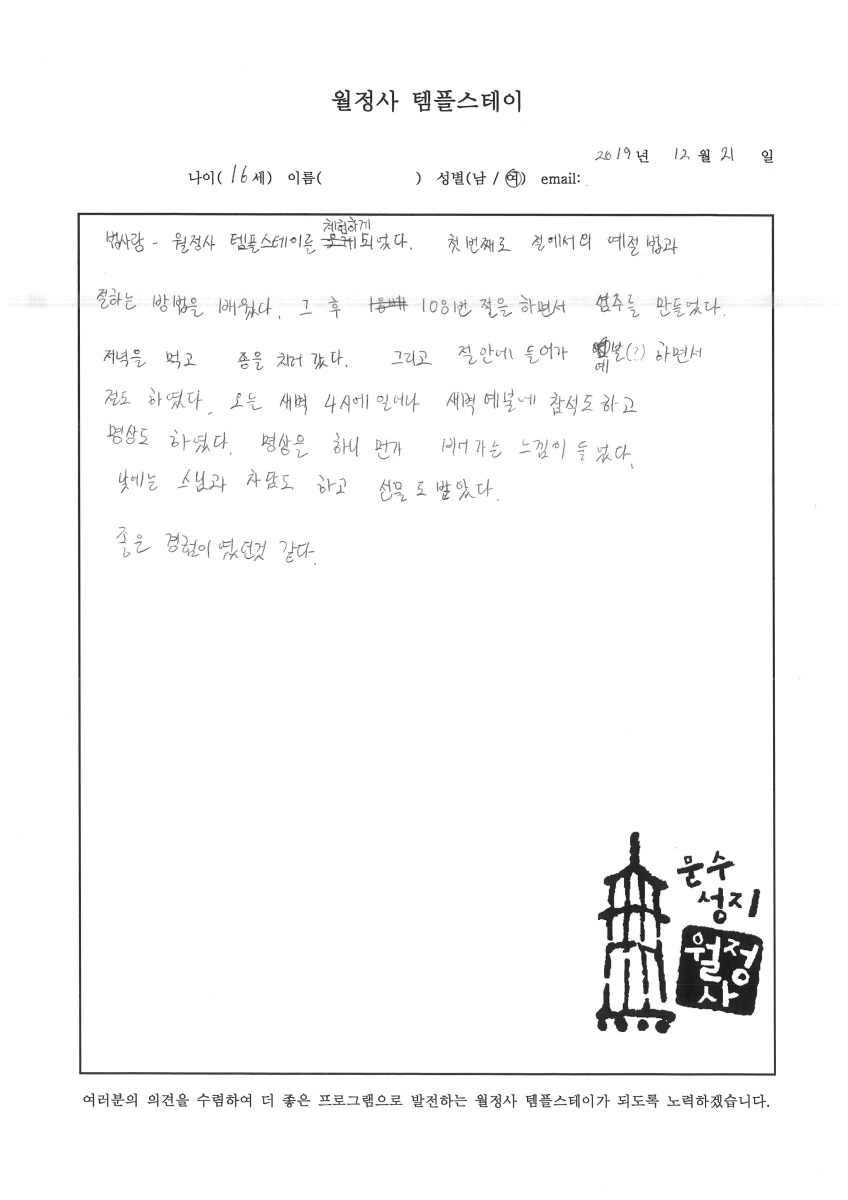 월정사 템플스테이
2019년 12월 21일
나이(16세) 이름( ) 성별(남 / 여) email:
법사랑 - 월정사 템플스테이를 체험하게 되었다. 첫번째로 절에서의 예절법과
절하는 방법을 배웠다. 그 후 108번 절을 하면서 염주를 만들었다.
저녁을 먹고 종을 치러 갔다. 그리고 절안에 들어가 예불(?) 하면서
절도 하였다. 오늘 새벽 4시에 일어나 새벽 예불에 참석도 하고
명상도 하였다. 명상을 하니 먼가 비어가는 느낌이 들었다.
낮에는 스님과 차담도 하고 선물도 받았다.
좋은 경험이 였던것 같다.
문수
성지
월정
사
여러분의 의견을 수렴하여 더 좋은 프로그램으로 발전하는 월정사 템플스테이가 되도록 노력하겠습니다.